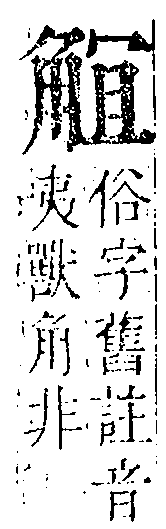 俗字舊註音
夷獸角非